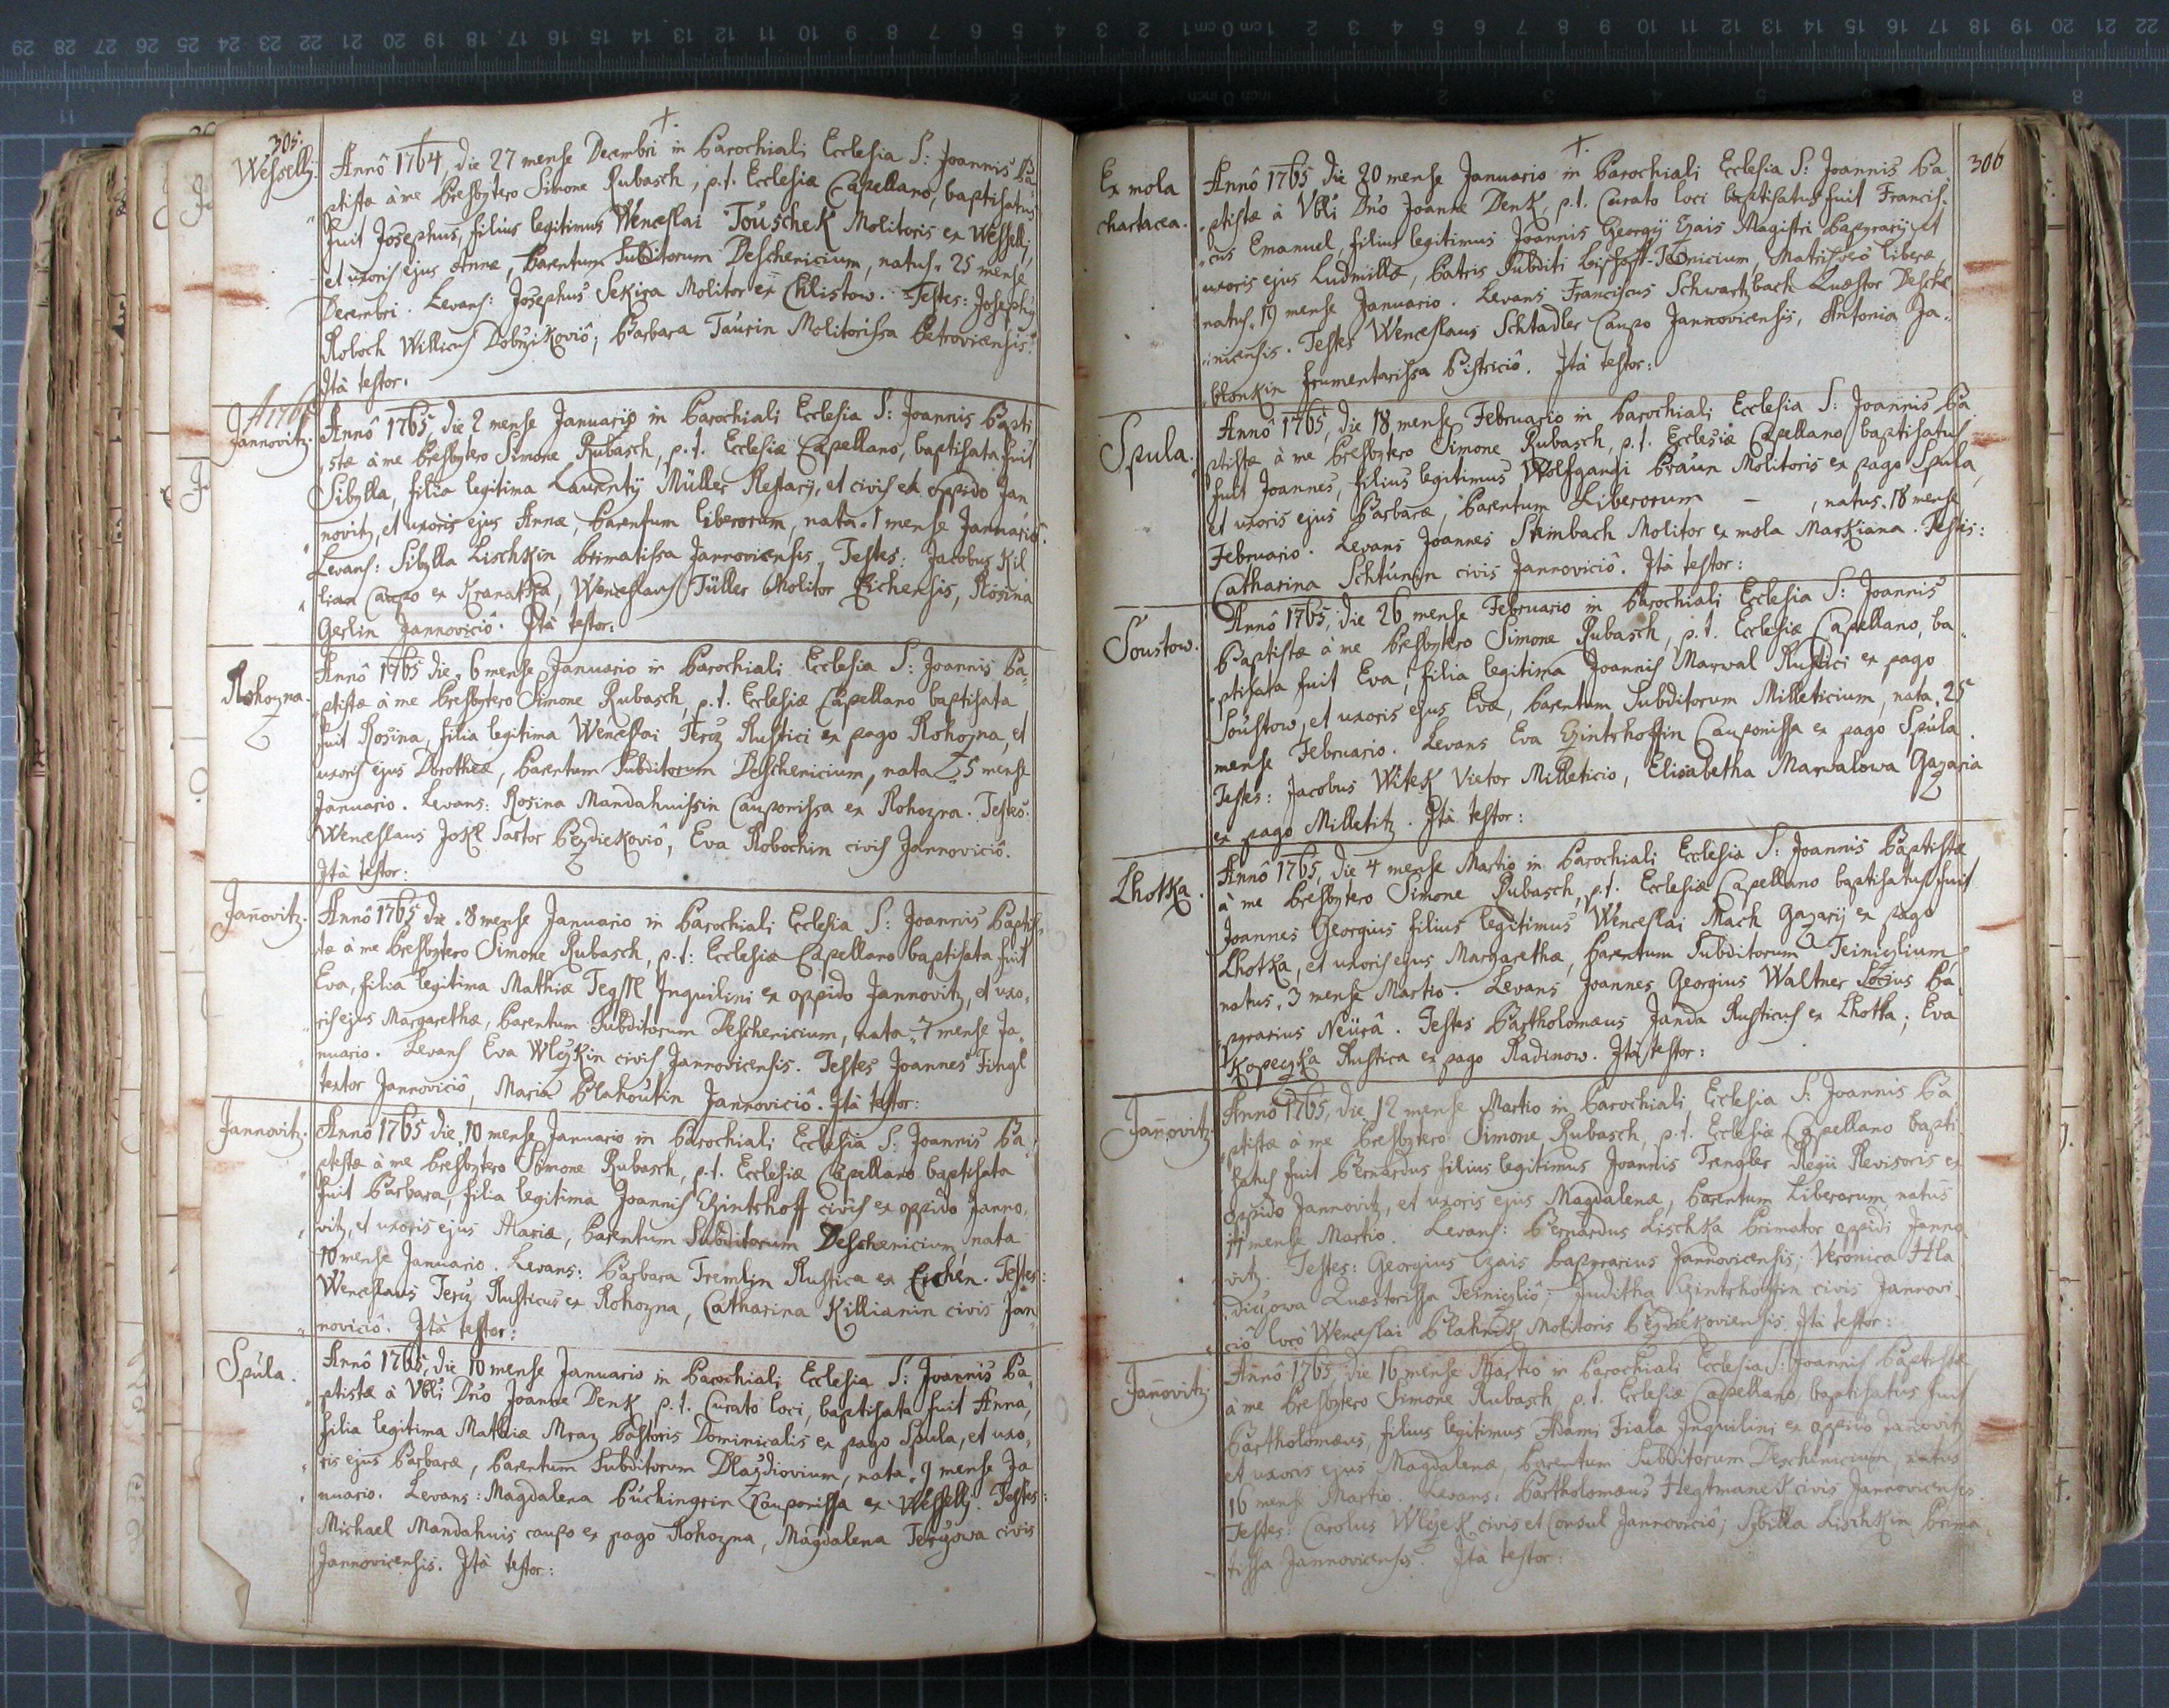 305.
Wesselly.
Annô 1764, die 27 mense Decembri in Parochiali Ecclesia S: Joannis Ba„
„ptistæ à me Presbytero Simone Rubasch, p.t. Ecclesiæ Capellano, baptisatus
fuit Josephus, filius legitimus Wenceslai Touschek Molitoris ex Wesselly,
et uxoris ejus Annæ, Parentum Subditorum Deschenicium, natus. 25 mense
Decembri. Levans: Josephus Sekira Molitor ex Chlistow. Testes: Josephus
Roboch Willicus Dobrzikoviô; Barbara Taurin Molitorissa Petrovicensis.
Ità testor.
A 1765
Jannovitz.
Annô 1765, die 2 mense Januario in Parochiali Ecclesia S: Joannis Bapti„
„stæ à me Presbytero Simone Rubasch, p.t. Ecclesiæ Capellano, baptisata fuit
Sibylla, filia legitima Laurentij Müller et civis ex oppido Jan„
novitz, et uxoris ejus Annæ, Parentum Liberorum, nata. 1 mense Januariô.
Levans: Sibylla Lischkin Primatissa Jannovicensis. Testes: Jacobus Kil„
„lian Caupo ex Wenceslaus Tüller Molitor Eichensis, Rosina
Gerlin Jannoviciô. Ità testor:
Rohozna.
Annô 1765 die. 6 mense Januario in Parochiali Ecclesia S: Joannis Ba„
„ptistæ à me Presbytero Simone Rubasch, p.t. Ecclesiæ Capellano baptisata
fuit Rosina, filia legitima Wenceslai Tericz Rustici ex pago Rohozna, et
uxoris ejus Dorotheæ, Parentum Subditorum Deschenicium, nata. 5 mense
Januario. Levans: Rosina Mandahuissin Cauponissa ex Rohozna. Testes:
Wenceslaus Jokl Sartor Bezdiekoviô, Eva Robochin civis Jannoviciô.
Ità testor:
Jan̄ovitz.
Annô 1765 die. 8 mense Januario in Parochiali Ecclesia S: Joannis Baptis„
tæ à me Presbytero Simone Rubasch, p.t: Ecclesiæ Capellano baptisata fuit
Eva, filia legitima Mathiæ Inquilini ex oppido Jannovitz, et uxo„
„ris ejus Margarethæ, Parentum Subditorum Deschenicium, nata. 7 mense Ja„
„nuario. Levans Eva Wlcžkin civis Jannovicensis. Testes Joannes Fingl
textor Jannoviciô, Maria Blahoutin Jannoviciô. Ità testor:
Jannovitz.
Annô 1765 die. 10 mense Januario in Parochiali Ecclesia S: Joannis Ba„
„ptistæ à me Presbytero Simone Rubasch, p.t. Ecclesiæ Capellano baptisata
fuit Barbara, filia legitima Joannis Gzintrhoff civis ex oppido Janno„
„vitz, et uxoris ejus Mariæ, Parentum Subditorum Deschenicium, nata
10 mense Januario. Levans: Barbara Tremlin Rustica ex Eichen. Testes:
Wenceslaus Tericz Rusticus ex Rohozna, Catharina Killianin civis Jan„
„noviciô. Ità testor:
Spula.
Annô 1765, die 10 mense Januario in Parochiali Ecclesia S: Joannis Ba„
„ptistæ à Vbli Dn̄o Joanne Denk p.t. Curato loci, baptisata fuit Anna,
filia legitima Mathiæ Mraz Pastoris Dominicalis ex pago Spula, et uxo„
„ris ejus Barbaræ, Parentum Subditorum Dlazdiovium, nata. 9 mense Ja„
„nuario. Levans: Magdalena Puchingrin Cauponissa ex Wesselly. Testes:
Michael Mandahuis caupo ex pago Rohozna, Magdalena Tericzowa civis
Jannovicensis. Ità testor:
306
Ex mola
chartacea.
Annô 1765 die 20 mense Januario in Parochiali Ecclesia S: Joannis Ba„
„ptistæ à Vbli Dn̄o Joanne Denk, p.t. Curato loci baptisatus fuit Francis„
„cus Emanuel, filius legitimus Joannis Georgij Gzais Magistri Papyrarij et
uxoris ejus Ludmillæ, Patris Subditi Matris verò liberæ,
natus. 19 mense Januario. Levans Franciscus Schwartzbach Quæstor Desche„
„nicensis. Testes Wenceslaus Schtadler Caupo Jannovicensis, Antonia Ja„
„blonkin frumentarissa Bistriciô. Ità testor:
Spula.
Annô 1765, die 18 mense Februario in Parochiali Ecclesia S: Joannis Ba„
„ptistæ à me Presbytero Simone Rubasch, p.t. Ecclesiæ Capellano baptisatus
fuit Joannes, filius legitimus Wolfgangi Braun Molitoris ex pago Spula,
et uxoris ejus Barbaræ, Parentum Liberorum – , natus. 18 mense
Februario. Levans Joannes Steinbach Molitor ex mola Markiana. Testes:
Catharina Schtunin civis Jannoviciô. Ità testor:
Soustow.
Annô 1765, die 26 mense Februario in Parochiali Ecclesia S: Joannis
Baptistæ à me Presbytero Simone Rubasch, p.t. Ecclesiæ Capellano, ba„
„ptisata fuit Eva, filia legitima Joannis Marwal Rustici ex pago
Soustow, et uxoris ejus Evæ, Parentum Subditorum Milleticium, nata. 25
mense Februario. Levans Eva Gzintrhoffin Cauponissa ex pago Spula.
Testes: Jacobus Witek Vietor Milleticio, Elisabetha Marwalowa Gazaria
ex pago Milletitz. Ità testor:
Lhotka.
Annô 1765, die 4 mense Martio in Parochiali Ecclesia S: Joannis Baptistæ
à me Presbytero Simone Rubasch, p.t. Ecclesiæ Capellano baptisatus fuit
Joannes Georgius filius legitimus Wenceslai Mach Gazarij ex pago
Lhotka, et uxoris ejus Margarethæ, Parentum Subditorum Teiniczlium,
natus. 3 mense Martio. Levans Joannes Georgius Waltner Socius Pa„
„pyrarius Neürâ. Testes Bartholomæus Janda Rusticus ex Lhotka; Eva
Kopeczka Rustica ex pago Radinow. Ità testor:
Jan̄ovitz.
Annô 1765, die 12 mense Martio in Parochiali Ecclesia S: Joannis Ba„
„ptistæ à me Presbytero Simone Rubasch, p.t. Ecclesiæ Capellano bapti„
satus fuit Bernardus filius legitimus Joannis Trengler Regii Revisoris ex
oppido Jannovitz, et uxoris ejus Magdalenæ, Parentum Liberorum, natus
11 mense Martio. Levans: Bernardus Lischka Primator oppidi Janno„
„vitz. Testes: Georgius Czais Papyrarius Jannovicensis; Veronica Hla„
„diczowa Quæstorissa Teiniczliô; Juditha Gzintrhoffin civis Jannovi„
„ciô locò Wenceslai Molitoris Bezdiekoviensis. Ità testor:
Jan̄ovitz.
Annô 1765, die 16 mense Martio in Parochiali Ecclesia S: Joannis Baptistæ
à me Presbytero Simone Rubasch, p.t. Ecclesiæ Capellano baptisatus fuit
Bartholomæus, filius legitimus Adami Fiala Inquilini ex oppido Jan̄ovitz
et uxoris ejus Magdalenæ, Parentum Subditorum Deschenicium, natus
16 mense Martio. Levans: Bartholomæus Hegtmanek civis Jannovicensis.
Testes: Carolus Wlczek civis et Consul Jannoviciô; Sibilla Lischkin Prima„
„tissa Jannovicensis. Ità testor: